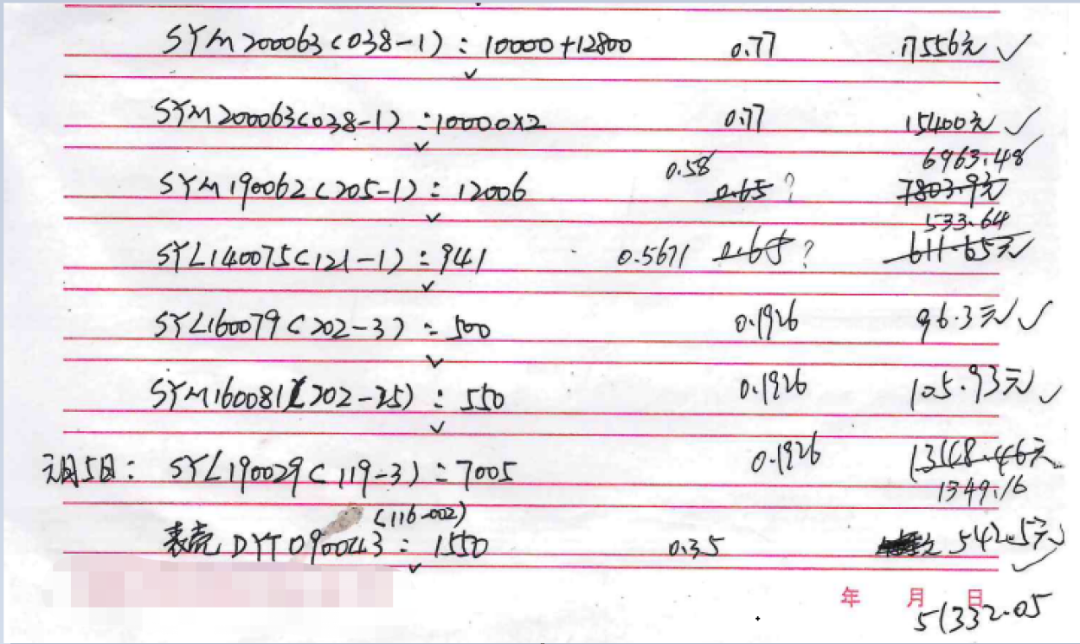 SYM200063(038-1):10000+12800 0.77 17556元 ✓
SYM200063(038-1):10000×2 0.77 15400元 ✓
0.58 6963.48
SYM190062(205-1):12006 0.65? 7803.9元
533.64
SYL140075(121-1):941 0.5671 0.65? 611.65元
SYL160079(202-3):500 0.1926 96.3元 ✓
SYM160081(202-25):550 0.1926 105.93元 ✓
元月5日: SYL190029(119-3):7005 0.1926 1348.46元
1349.16
(116-002)
表壳DYT0900043:1550 0.35 542.5元 ✓
年 月 日
51332.05